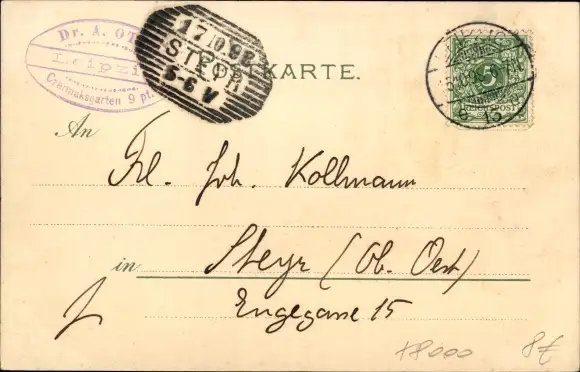 Dr. A. OT
Leipzi
Czermaksgarten 9 pt.
17/10.98
STEYR
5-6 N
POSTKARTE.
5
REICHSPOST
An
Frl. Joh. Kollmann
in Steyr (Ob. Oest)
Engegasse 15
+8000
8€